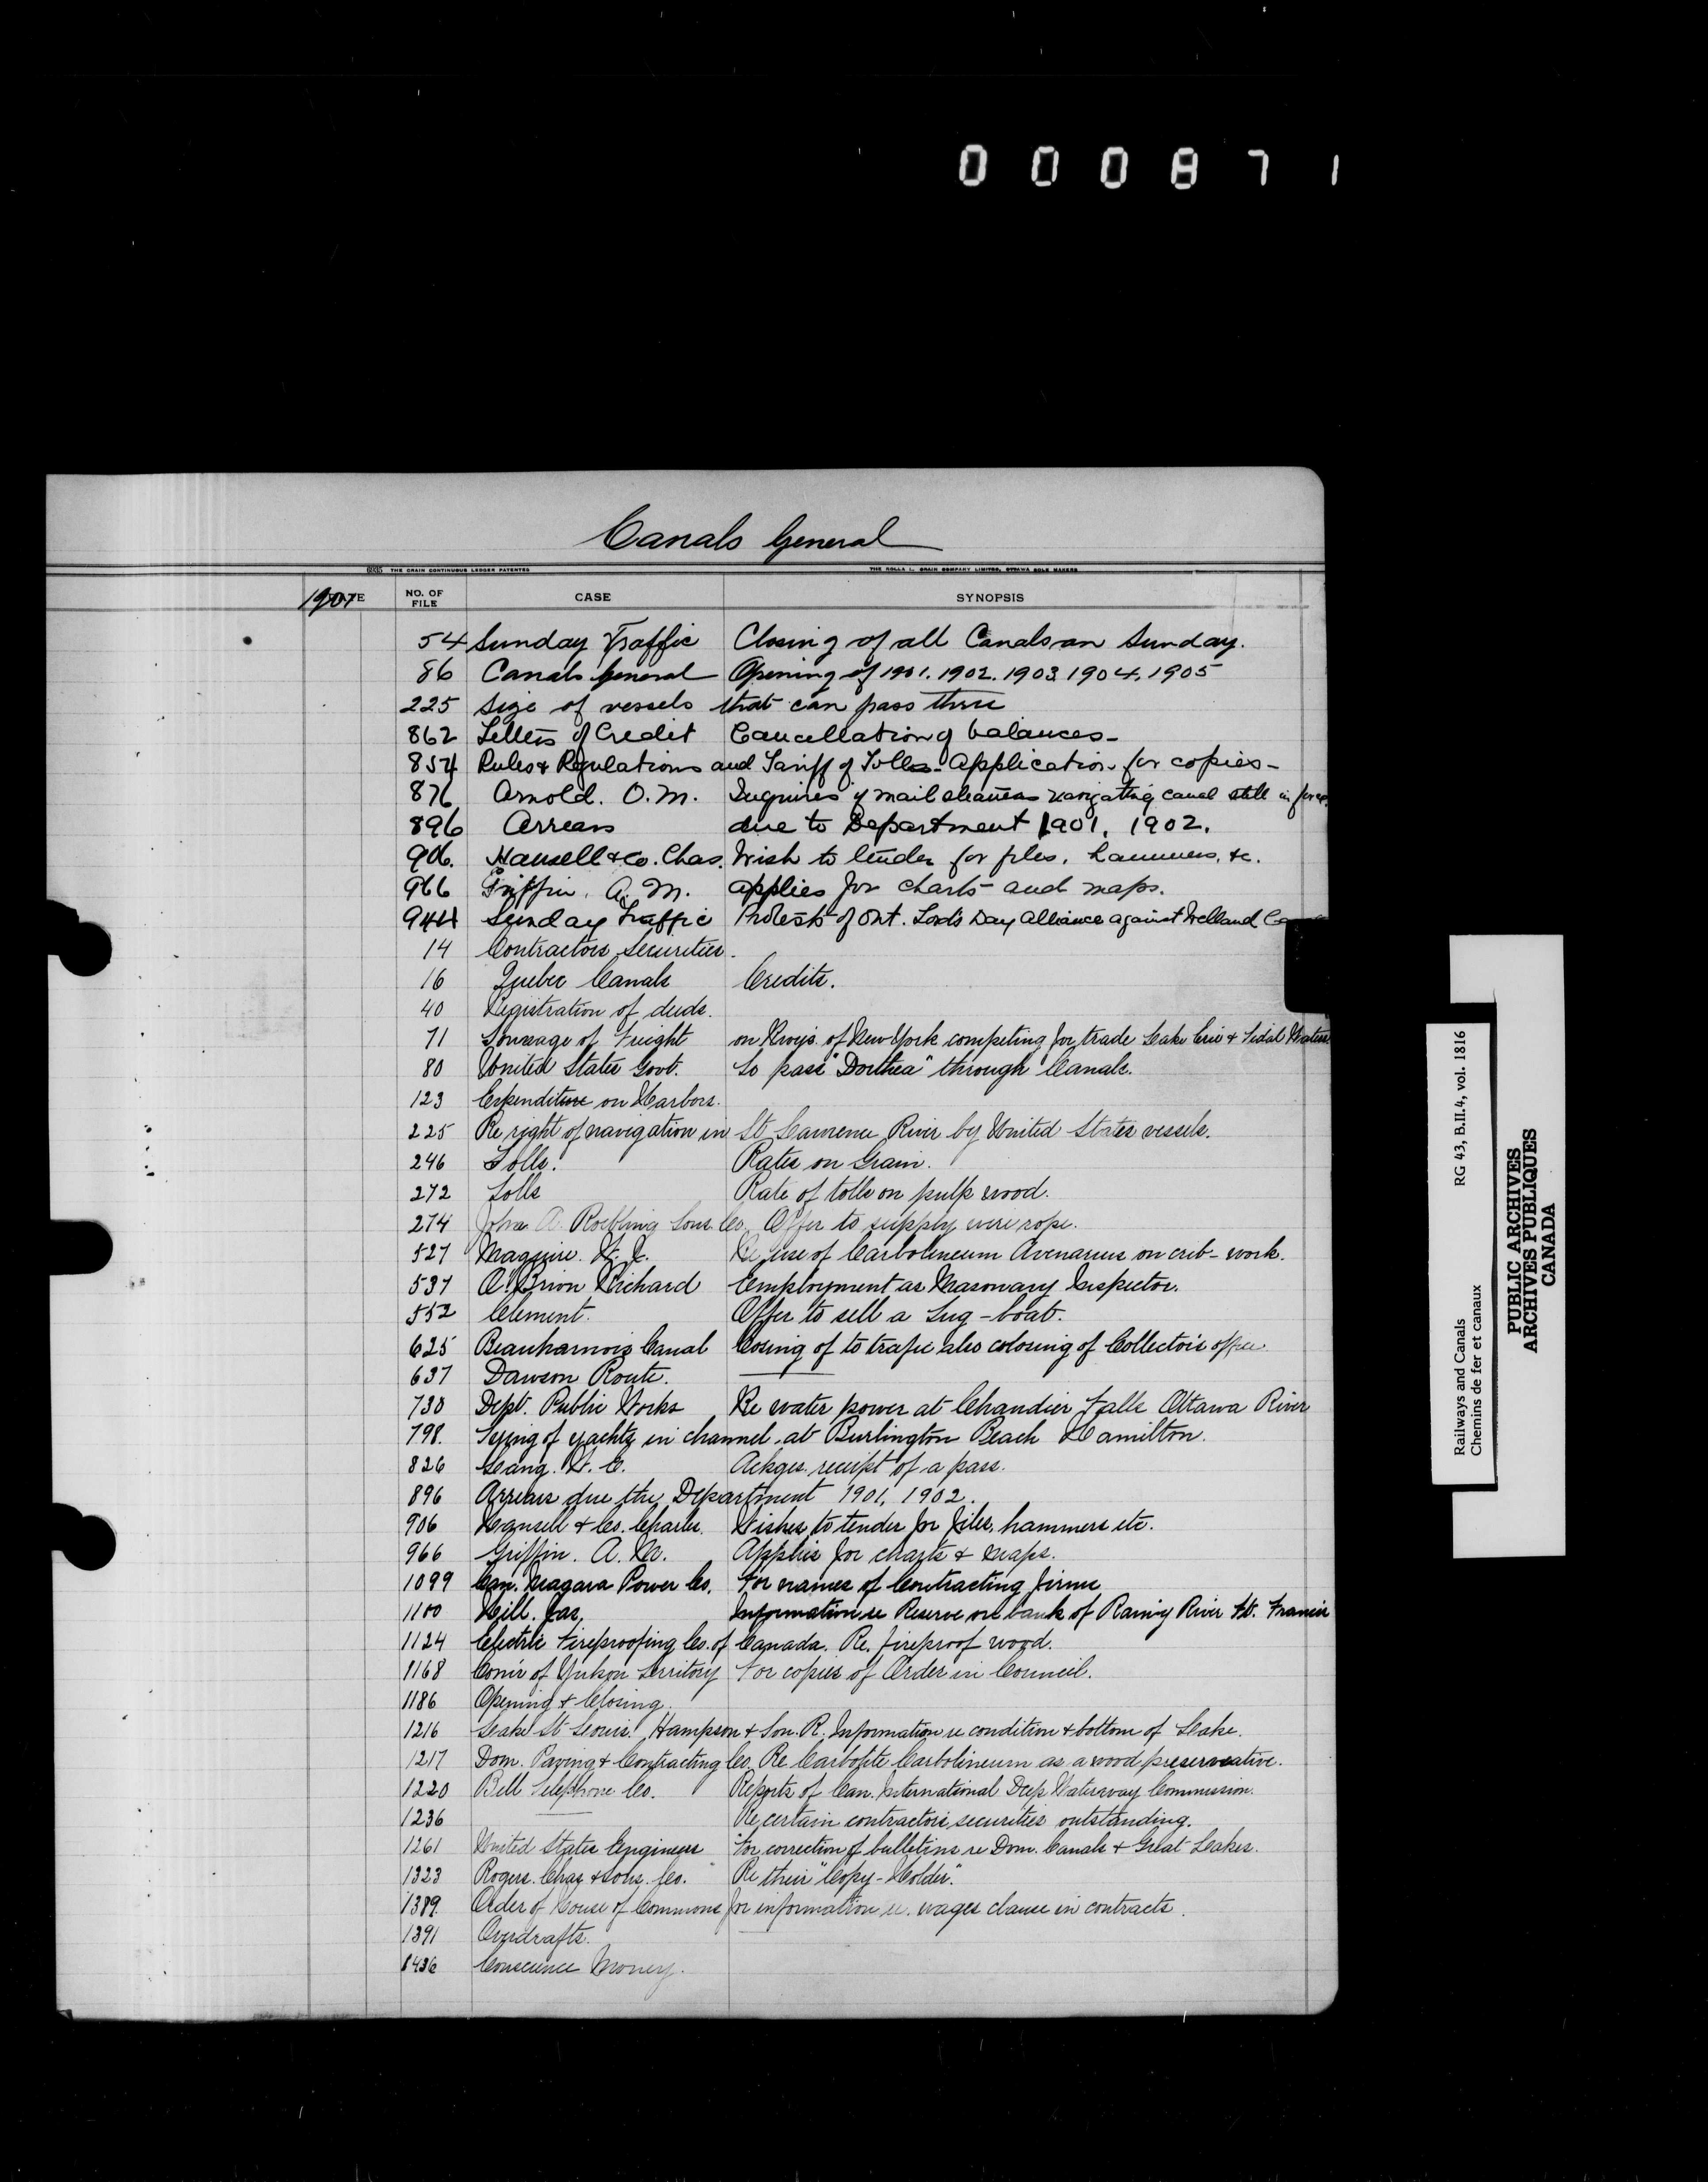 000871
Canals General
6935 THE CRAIN CONTINUOUS LEDGER PATENTED THE ROLLA L. CRAIN COMPANY LIMITED, OTTAWA SOLE MAKERS
1901 DATE NO. OF FILE CASE SYNOPSIS
54 Sunday Traffic Closing of all Canals on Sunday.
86 Canals General Opening of 1901. 1902. 1903. 1904. 1905
225 Size of vessels that can pass thru
862 Letters of Credit Cancellation of balances-
854 Rules & Regulations and Tariff of Tolls - Application for copies-
876 Arnold. O.M. Inquires if mail steamers navigating canal still in force
896 Arrears due to Department 1901, 1902.
906. Hansell & Co. Chas. Wish to tender for files, hammers, &c.
966 Griffin. A. M. applies for charts and maps.
944 Sunday Traffic Protests of Ont. Lord's Day Alliance against Welland
14 Contractors Securities.
16 Quebec Canals Credits.
40 Registration of deeds.
71 Tonnage of Freight on Rwys. of New York competing for trade Lake Erie & Tidal Waters
80 United States Govt. To pass "Dorthea" through Canals.
123 Expenditure on Harbors.
225 Re right of navigation in St Lawrence River by United States vessels.
246 Tolls. Rates on Grain.
272 Tolls Rate of tolls on pulp wood.
274 John A. Roebling Sons Co. Offer to supply wire rope.
527 Maguire. Re use of Carbolineum Avenarius on crib-work.
537 O'Brion Richard Employment as Masonary Inspector.
552 Clement. Offer to sell a Tug-boat.
625 Beauharnois Canal Cosing of to trafic also colosing of Collector's office
637 Dawson Route.
730 Dept. Public Works Re water power at Chaudier Falls Ottawa River
798. Tying of yachts in channel at Burlington Beach Hamilton.
826 Lang. Ackges. receipt of a pass.
896 Arrears due the Department 1901, 1902.
906 Hansell & Co. Charles. Wishes to tender for files, hammers etc.
966 Griffin. A. M. Applies for charts & maps.
1099 Can. Niagara Power Co. For names of Contracting firms
1100 Hill. Jas. Information re Reserve on bank of Rainy River Ft. Francis
1124 Electric Fireproofing Co. of Canada. Re. fireproof wood.
1168 Com'r of Yukon Territory For copies of Order in Council.
1186 Opening & Closing.
1216 Lake St Louis. Hampson & Son. R. Information re condition & bottom of Lake.
1217 Dom. Paving & Contracting Co. Re Carbolite Carbolineum as a wood preservative.
1220 Bell Telephone Co. Reports of Can. International Deep Waterway Commission.
1236 Re certain contractors securities outstanding.
1261 United States Engineers For correction of bulletins re Dom. Canals & Great Lakes.
1323 Rogers. Chas & sons. Co. Re their "Copy-Holder".
1389. Order of House of Commons for information re. wages clause in contracts.
1391 Overdrafts.
8436 Conscience Money.
Railways and Canals RG 43, B.II.4, vol. 1816
Chemins de fer et canaux
PUBLIC ARCHIVES
ARCHIVES PUBLIQUES
CANADA